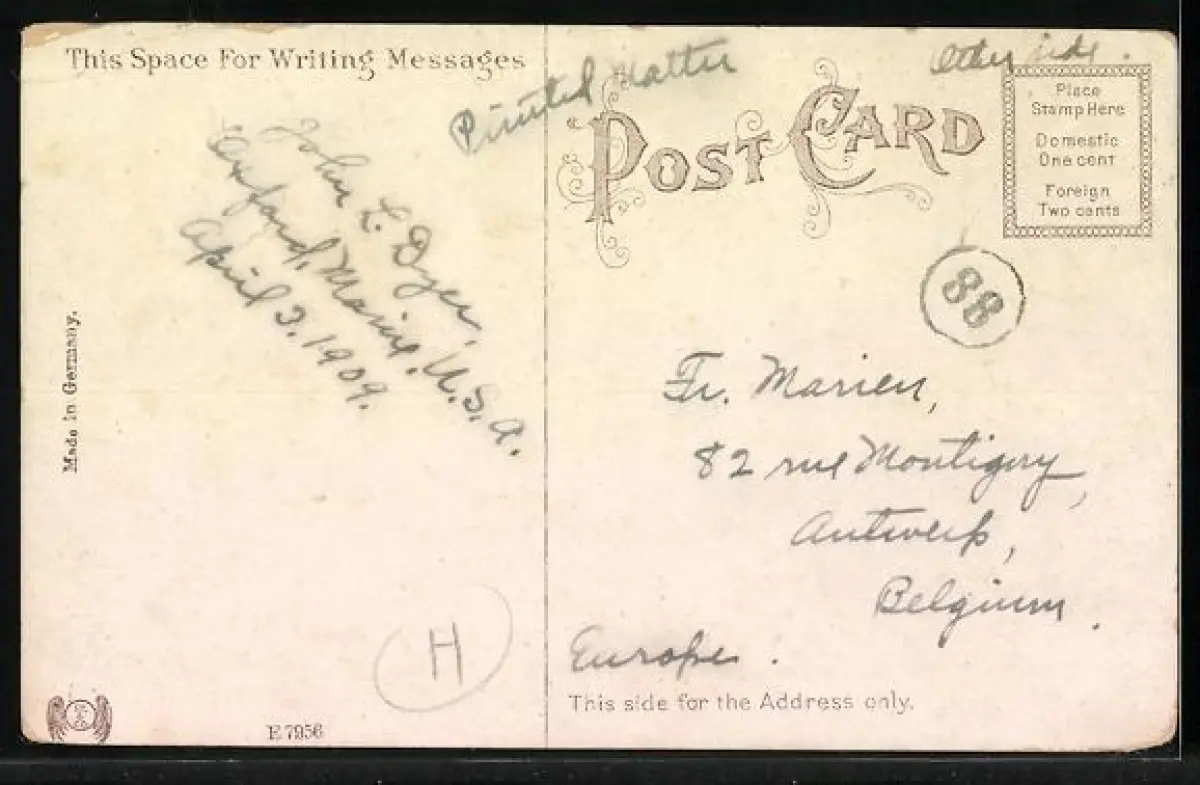 This Space For Writing Messages
Printed Matter
Other side.
POST CARD
Place
Stamp Here
Domestic
One cent
Foreign
Two cents
John L. Dyer,
Oxford, Maine, U.S.A.
April 3. 1909.
88
Fr. Marien,
82 rue Montigny,
Antwerp,
Belgium.
Europe.
This side for the Address only.
Made in Germany.
H
E 7956